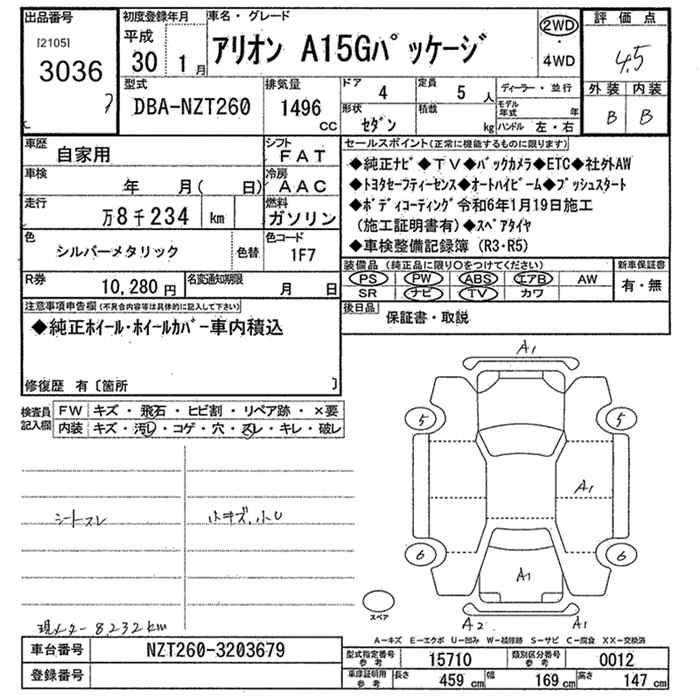 出品番号
[2105]
3036
初度登録年月
平成
30 1月
車名・グレード
アリオン A15Gパッケージ
2WD
・
4WD
評価点
4.5
外装 内装
B B
型式
DBA-NZT260
排気量
1496
CC
ドア
4
定員
5 人
形状
セダン
積載
kg
ディーラー・並行
モデル年式 年
ハンドル 左・右
車歴
自家用
シフト
FAT
車検
年 月( 日)
冷房
AAC
走行
万8千234 km
燃料
ガソリン
色
シルバーメタリック
色替
色コード
1F7
R券
10,280円
名変通知期限
月 日
セールスポイント(正常に機能するものに限ります)
◆純正ナビ◆TV◆バックカメラ◆ETC◆社外AW
◆トヨタセーフティーセンス◆オートハイビーム◆プッシュスタート
◆ボディコーティング令和6年1月19日施工
(施工証明書有)◆スペアタイヤ
◆車検整備記録簿(R3・R5)
装備品(純正品に限り○をつけてください)
PS PW ABS エアB AW
SR ナビ TV カワ
新車保証書
有・無
後日品
保証書・取説
注意事項申告欄(不具合内容等は具体的に記入して下さい)
◆純正ホイール・ホイールカバー車内積込
修復歴 有〔箇所 〕
検査員記入欄
FW キズ・飛石・ヒビ割・リペア跡・×要
内装 キズ・汚し・コゲ・穴・スレ・キレ・破レ
シートスレ
小キズ、小U
現メーター 8232km
A1
5
5
A1
6
6
A1
スペア
A2
A1
A-キズ E-エクボ U-凹み W-補修跡 S-サビ C-腐食 XX-交換済
車台番号
NZT260-3203679
登録番号
型式指定番号 参考
15710
類別区分番号 参考
0012
車庫証明用 参考
長さ
459 cm
幅
169 cm
高さ
147 cm